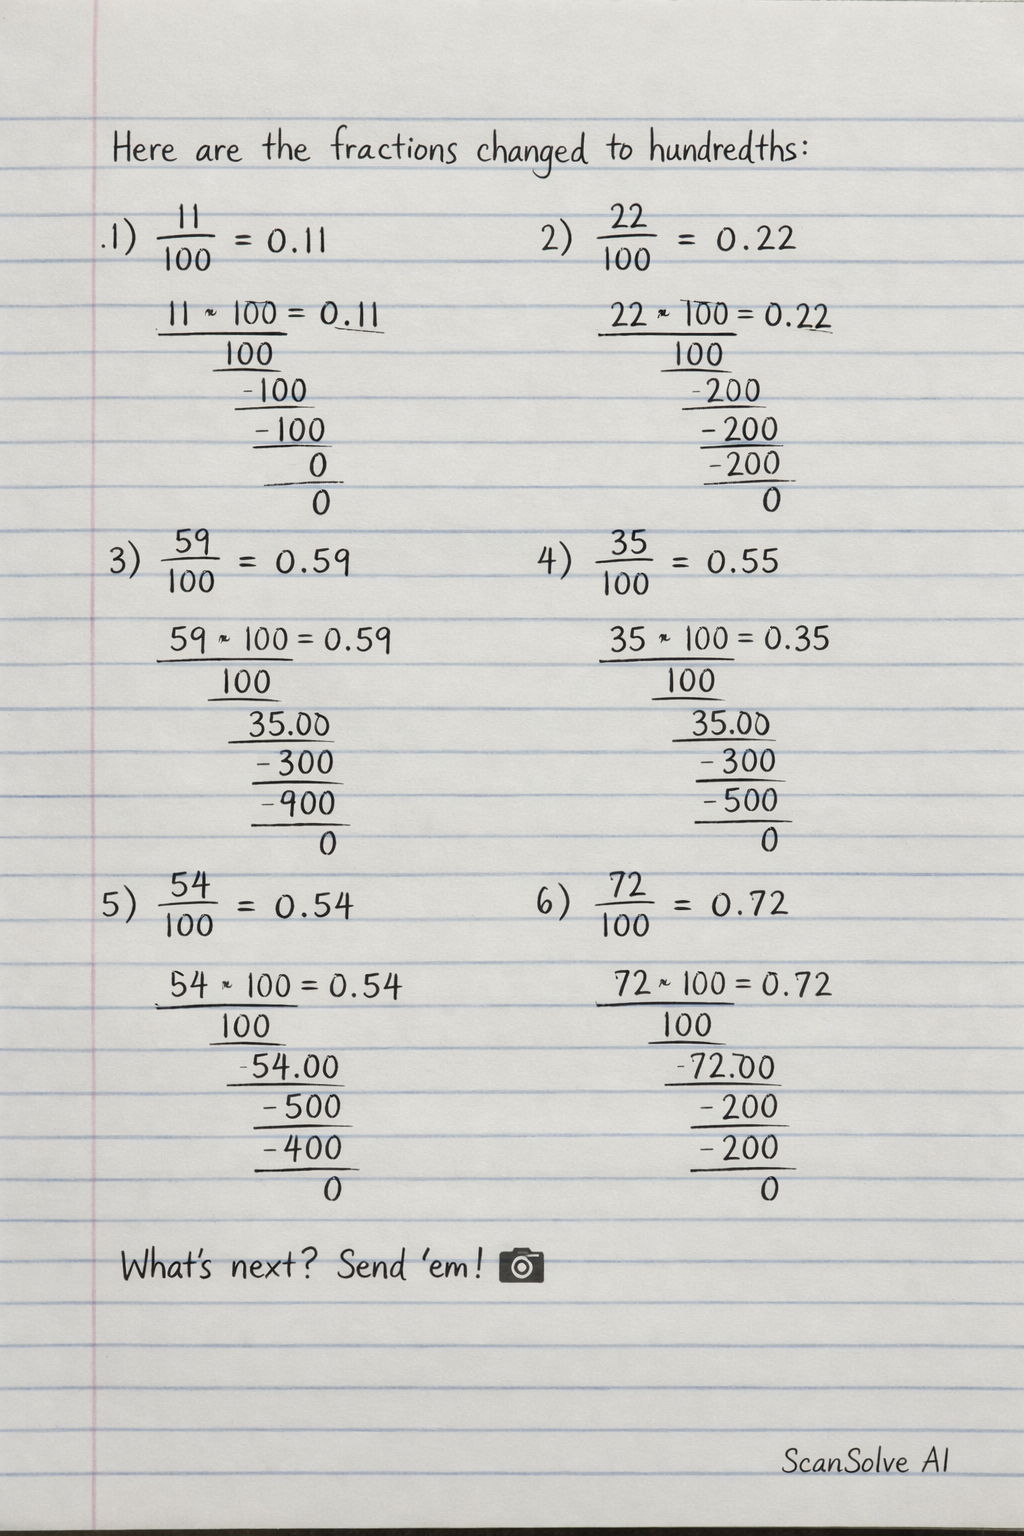 Here are the fractions changed to hundredths:
.1) 11/100 = 0.11
11 ÷ 100 = 0.11
100
-100
-100
0
0
2) 22/100 = 0.22
22 ÷ 100 = 0.22
100
-200
-200
-200
0
3) 59/100 = 0.59
59 ÷ 100 = 0.59
100
35.00
-300
-900
0
4) 35/100 = 0.55
35 ÷ 100 = 0.35
100
35.00
-300
-500
0
5) 54/100 = 0.54
54 ÷ 100 = 0.54
100
-54.00
-500
-400
0
6) 72/100 = 0.72
72 ÷ 100 = 0.72
100
-72.00
-200
-200
0
What's next? Send 'em! 📷
ScanSolve AI